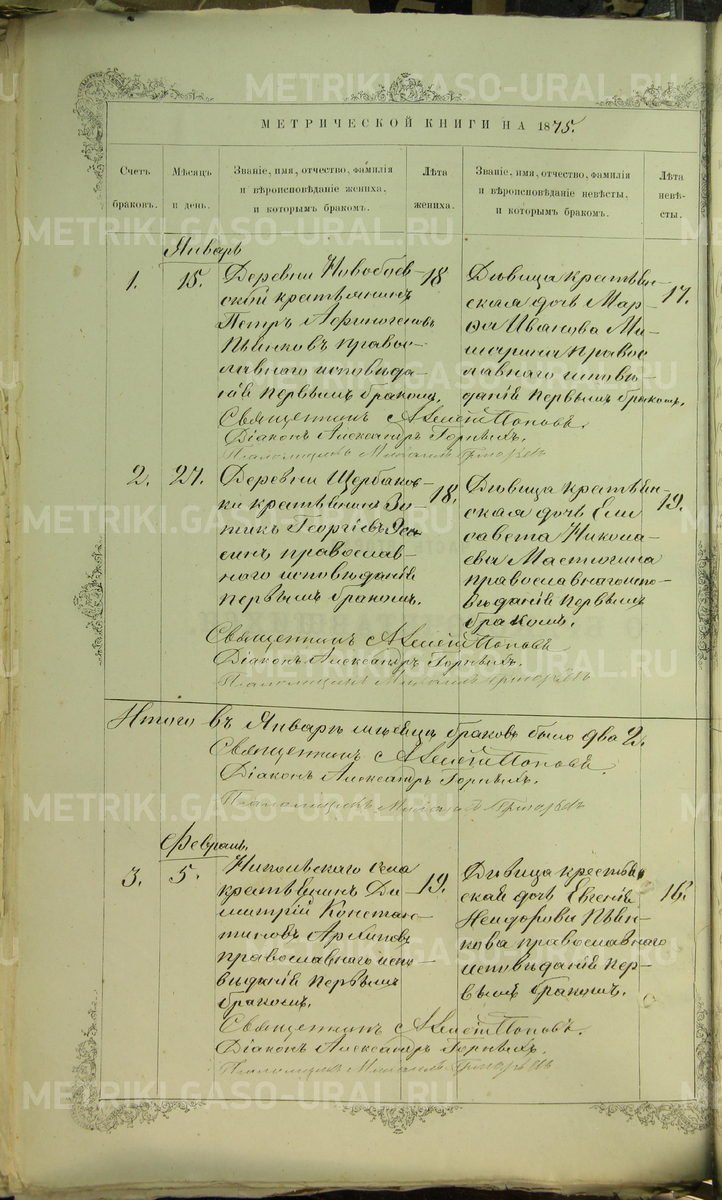 METRIKI.GASO-URAL.RU
МЕТРИЧЕСКОЙ КНИГИ НА 1875.
Счетъ браковъ.
Мѣсяцъ и день.
Званіе, имя, отчество, фамилія и вѣроисповѣданіе жениха, и которымъ бракомъ.
Лѣта жениха.
Званіе, имя, отчество, фамилія и вѣроисповѣданіе невѣсты, и которымъ бракомъ.
Лѣта невѣсты.
Январь
1.
15.
Деревни Новобаев-
ской крестьянинъ
Петръ Афиногеновъ
Пьянковъ право-
славнаго исповѣда-
ній первымъ бракомъ.
18
Дѣвица крестьян-
ская дочь Мар-
фа Иванова Ми-
шарина право-
славнаго исповѣ-
даній первымъ бракомъ.
17.
Священникъ Алексій Поповъ.
Діаконъ Александръ Горныхъ.
Псаломщикъ Михаилъ Григорьевъ
2.
27.
Деревни Щербаков-
ки крестьянинъ Зо-
тикъ Георгіевъ
православ-
наго исповѣданій
первымъ бракомъ.
18.
Дѣвица крестьян-
ская дочь Ели
савета Никола-
ева
православнаго испо-
вѣданій первымъ
бракомъ.
19.
Священникъ Алексій Поповъ
Діаконъ Александръ Горныхъ.
Псаломщикъ Михаилъ Григорьевъ
Итого въ Январѣ мѣсяцѣ браковъ было два 2.
Священникъ Алексій Поповъ.
Діаконъ Александръ Горныхъ.
Псаломщикъ Михаилъ Григорьевъ
Февраль.
3.
5.
Никольскаго села
крестьянинъ Ди-
митрій Констан-
тиновъ Архиповъ
православнаго испо-
вѣданій первымъ
бракомъ.
19.
Дѣвица крестьян
ская дочь Евгенія
Пьян-
кова православнаго
исповѣданій пер-
вымъ бракомъ.
16.
Священникъ Алексій Поповъ.
Діаконъ Александръ Горныхъ.
Псаломщикъ Михаилъ Григорьевъ